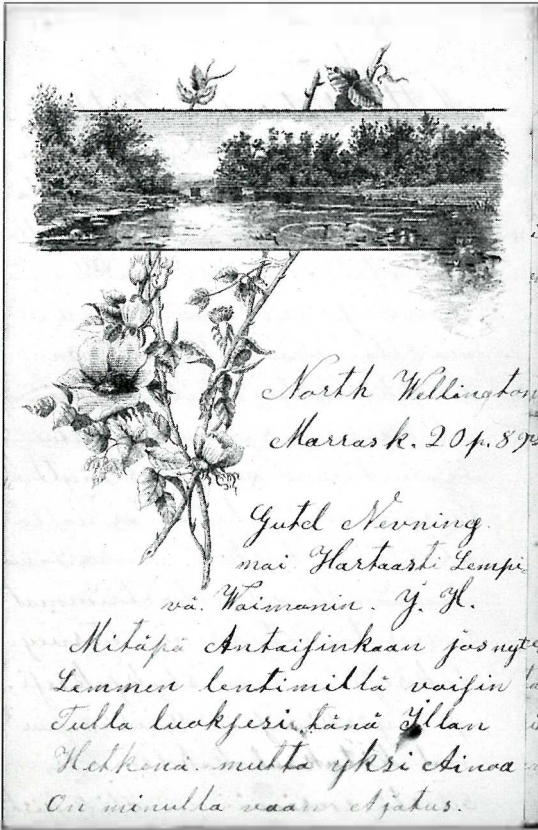 North Wellington
Marrask. 20 p. 89
Gutd Nevning
mai Hartaasti Lempi-
vä. Waimonin. Y. H.
Mitäpä Antaisinkaan jos nyt
Lemmen lentimillä voisin
Tulla luoksesi tänä Illan
Hetkenä. mutta yksi Ainoa
On minulla vaan Ajatus.